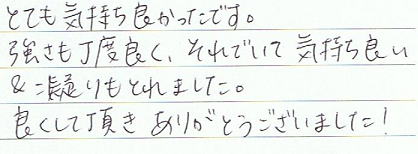 とても気持ち良かったです。
強さも丁度良く、それでいて気持ち良い
&凝りもとれました。
良くして頂きありがとうございました!